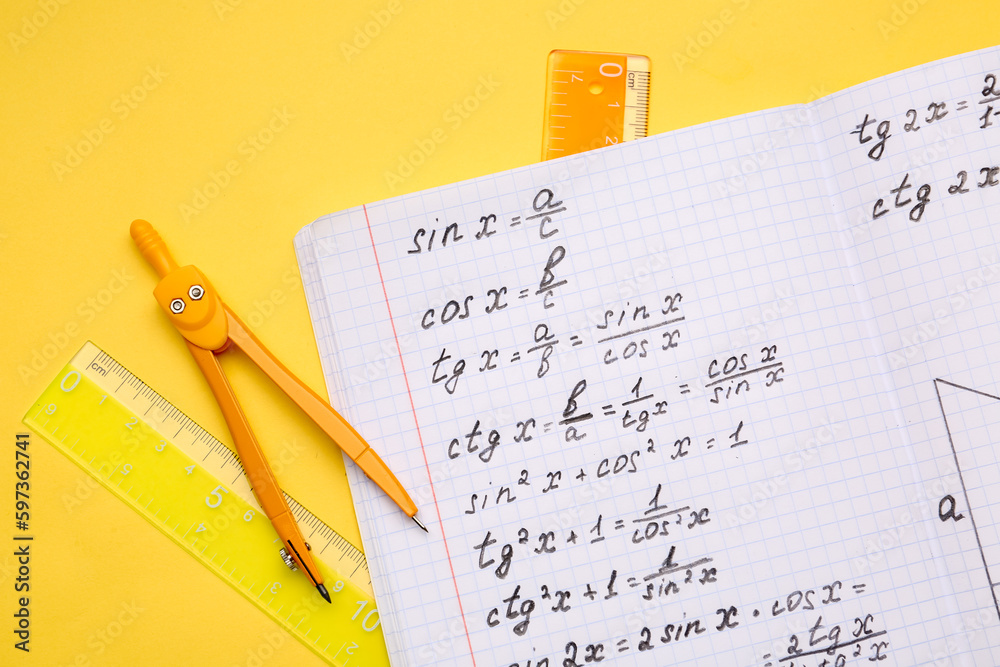 sin x = a/c
cos x = b/c
tg x = a/b = sin x/cos x
ctg x = b/a = 1/tg x = cos x/sin x
sin² x + cos² x = 1
tg² x + 1 = 1/cos² x
ctg² x + 1 = 1/sin² x
2x = 2 sin x · cos x =
= 2 tg x
tg 2x = 2
ctg 2x
a
0 1 2
cm
0 cm 5 10
Adobe Stock | #597362741
Adobe Stock